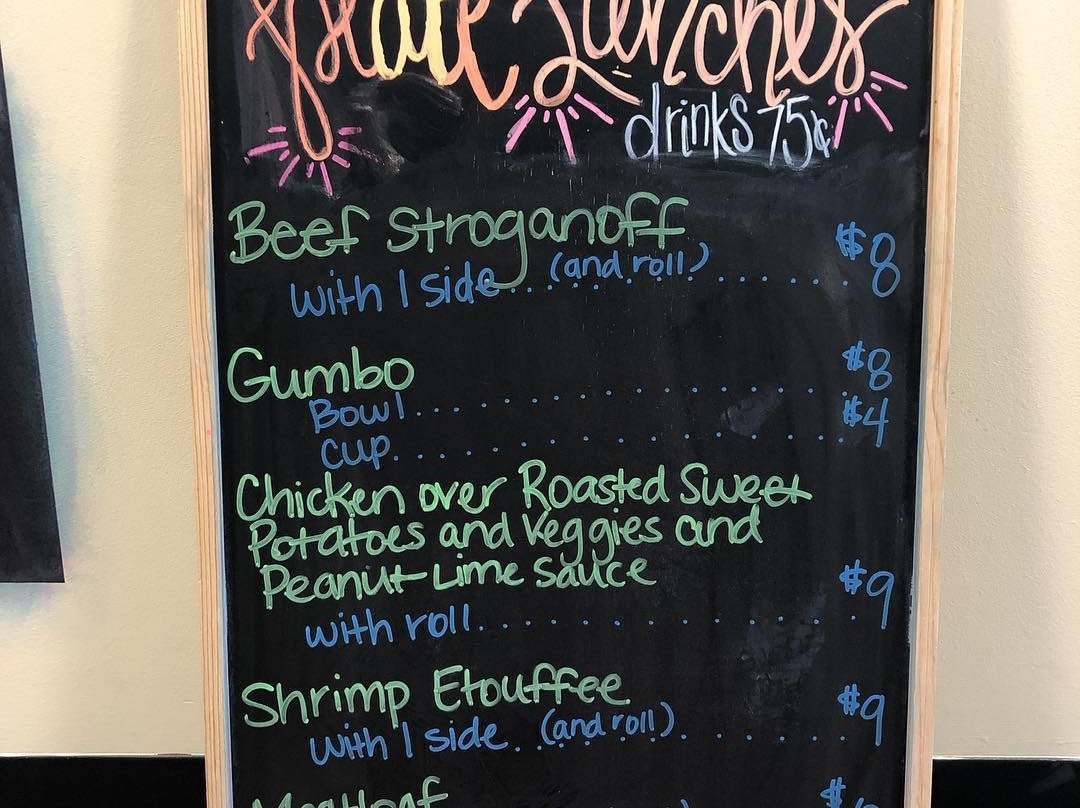 Plate Lunches
drinks 75¢
Beef Stroganoff
with 1 side (and roll) . . . . . . . . . . . . $8
Gumbo
Bowl . . . . . . . . . . . . . . . . $8
cup . . . . . . . . . . . . . . . . $4
Chicken over Roasted Sweet
Potatoes and Veggies and
Peanut-Lime Sauce
with roll . . . . . . . . . . . . . . $9
Shrimp Etouffee
with 1 side (and roll) . . . . . . . . . . . . $9
Meatloaf